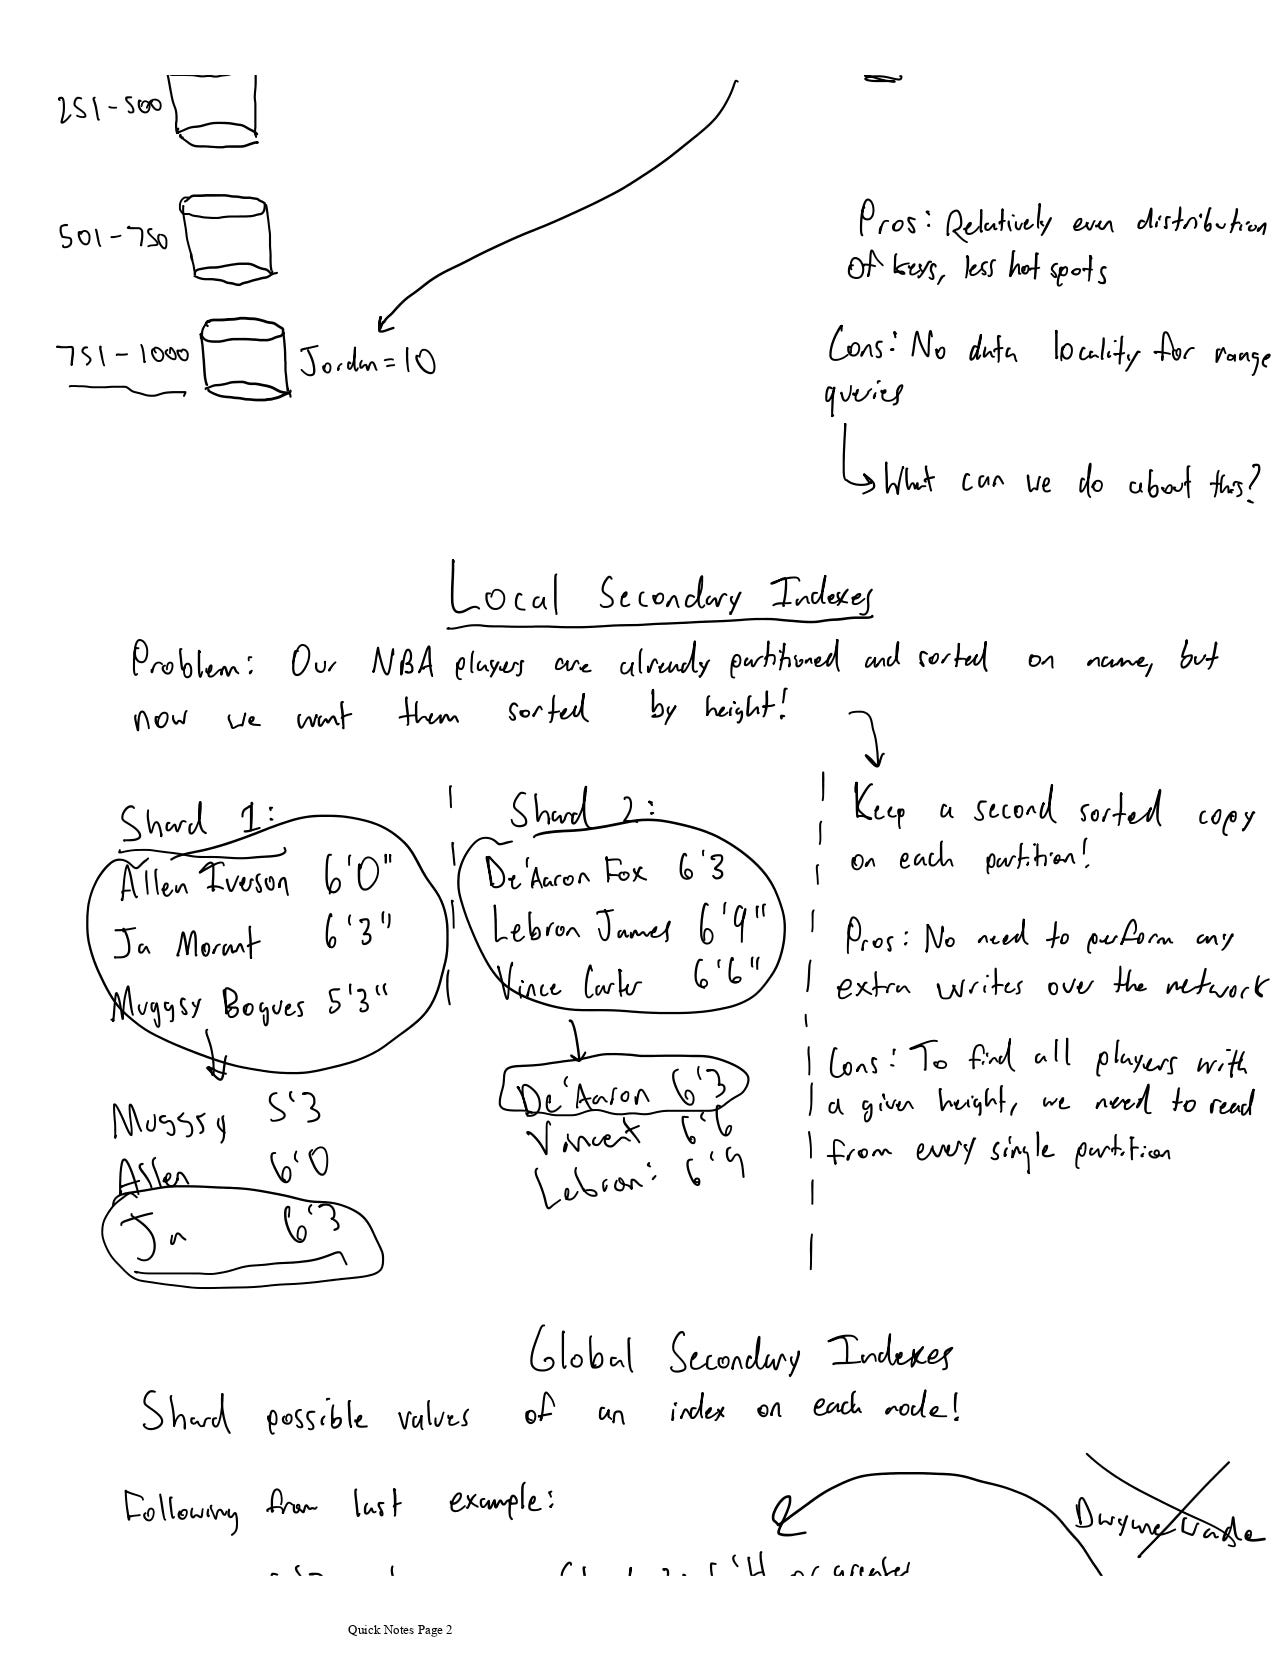 251-500
501-750
751-1000
Jordan = 10
Pros: Relatively even distribution
of keys, less hot spots
Cons: No data locality for range
queries
What can we do about this?
Local Secondary Indexes
Problem: Our NBA players are already partitioned and sorted on name, but
now we want them sorted by height!
Shard 1:
Allen Iverson 6'0"
Ja Morant 6'3"
Muggsy Bogues 5'3"
Muggsy 5'3
Allen 6'0
Ja 6'3
Shard 2:
De'Aaron Fox 6'3
Lebron James 6'9"
Vince Carter 6'6"
De'Aaron 6'3
Vincent 6'6
Lebron: 6'9
Keep a second sorted copy
on each partition!
Pros: No need to perform any
extra writes over the network
Cons: To find all players with
a given height, we need to read
from every single partition
Global Secondary Indexes
Shard possible values of an index on each node!
Following from last example:
Dwyane Wade
or greater
Quick Notes Page 2